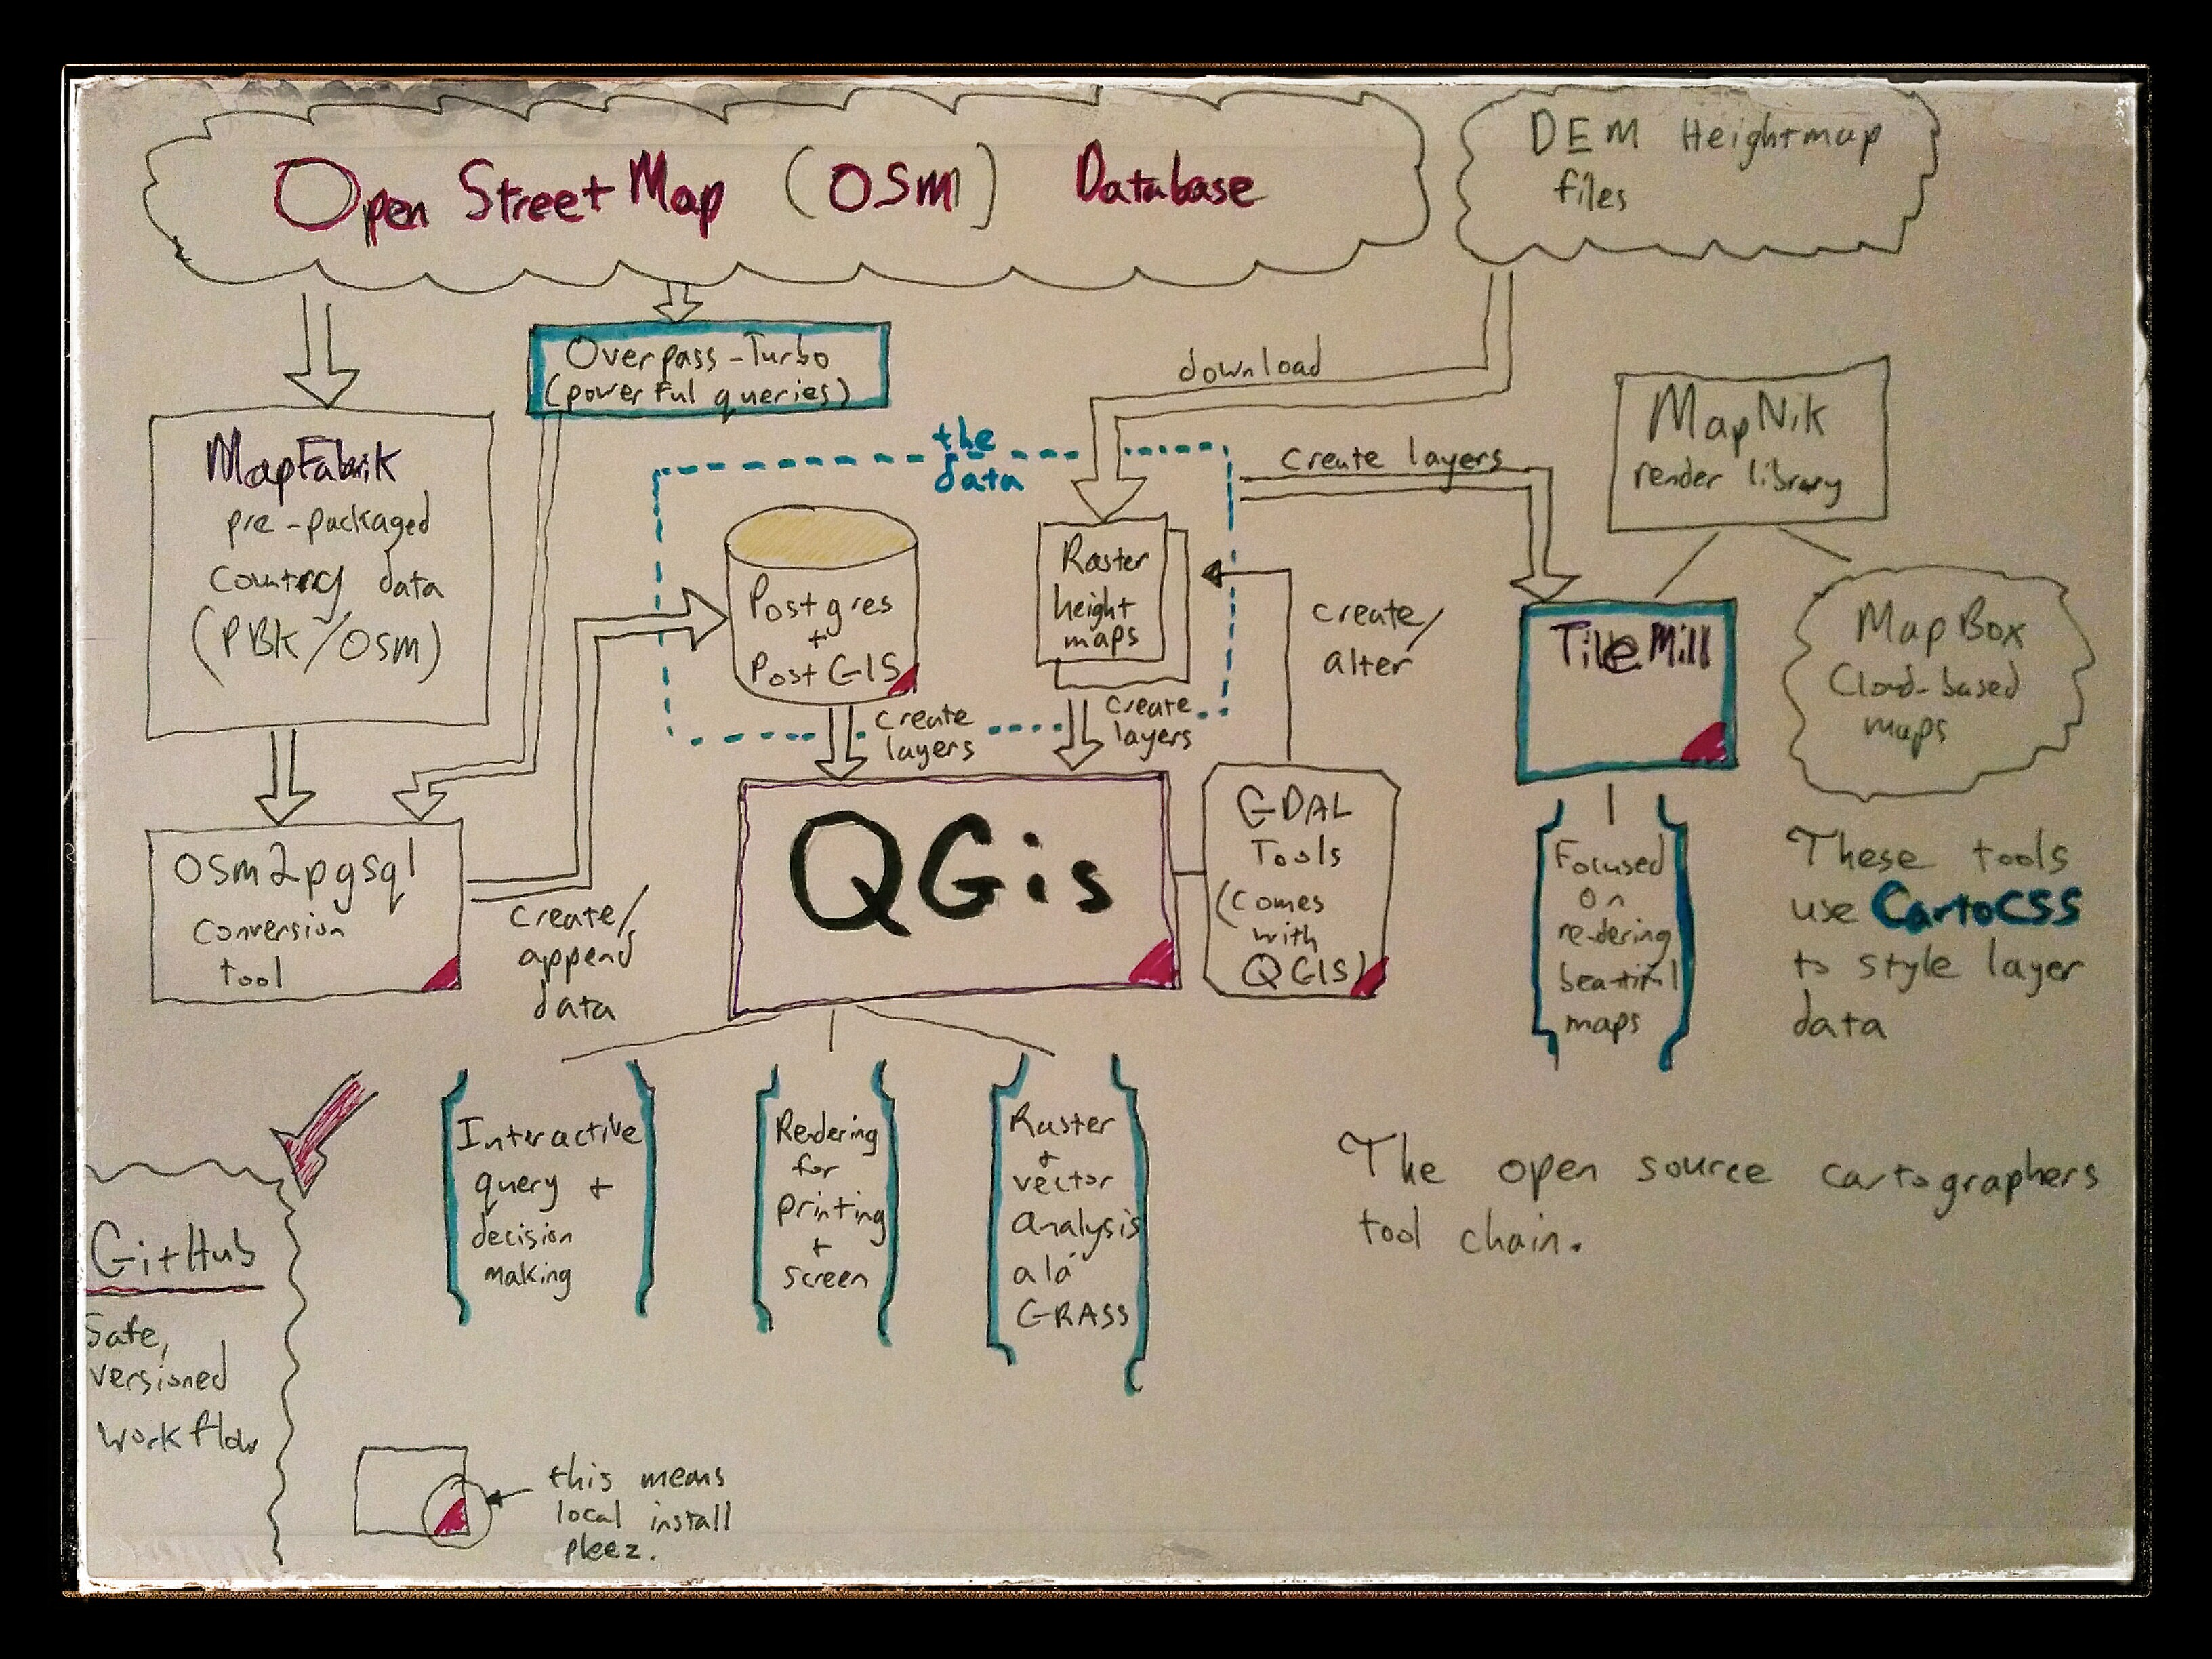 Open Street Map (OSM) Database
DEM Heightmap
files
Overpass-Turbo
(powerful queries)
download
MapFabrik
pre-packaged
Country data
(PBK/OSM)
the
data
create layers
MapNik
render library
Postgres
+
PostGIS
Raster
height
maps
create/
alter
TileMill
MapBox
Cloud-based
maps
create
layers
create
layers
osm2pgsql
conversion
tool
create/
append
data
QGis
GDAL
Tools
(comes
with
QGIS)
Focused
on
rendering
beautiful
maps
These tools
use CartoCSS
to style layer
data
Interactive
query +
decision
making
Rendering
for
printing
+
screen
Raster
+
vector
analysis
a lá
GRASS
The open source cartographers
tool chain.
GitHub
Safe,
versioned
workflow
this means
local install
pleez.